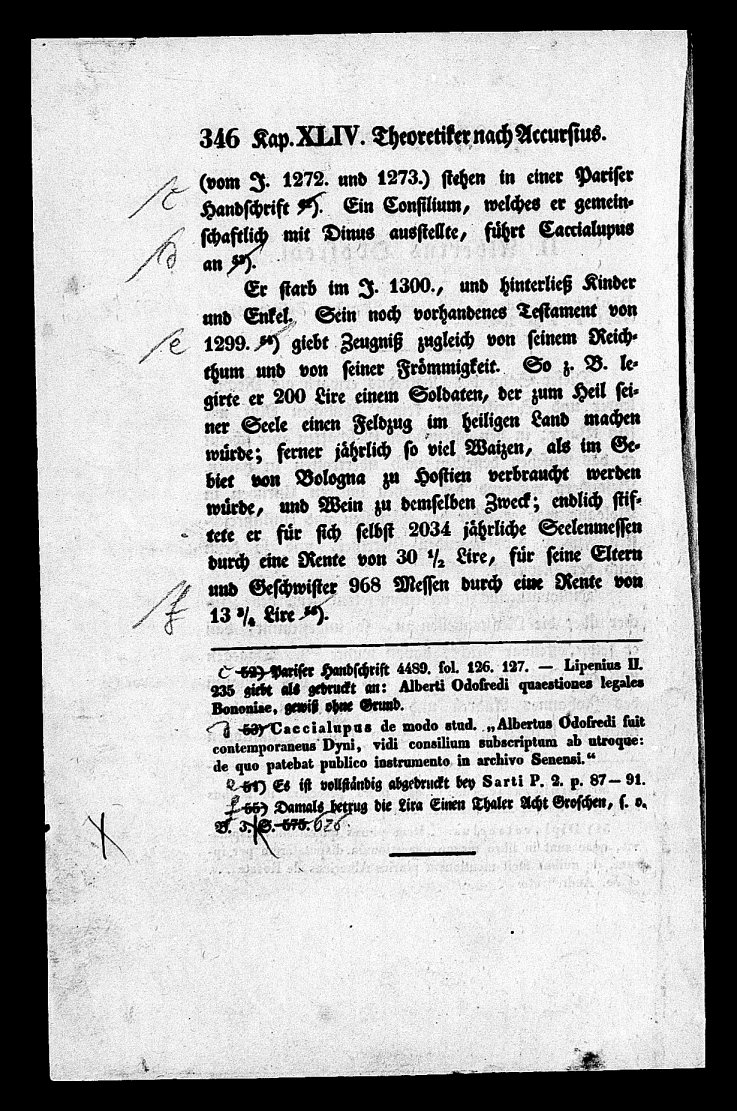 346 Kap. XLIV. Theoretiker nach Accursius.
(vom J. 1272. und 1273.) stehen in einer Pariser
c Handschrift 52). Ein Consilium, welches er gemein-
schaftlich mit Dinus ausstellte, führt Caccialupus
d an 53).
Er starb im J. 1300., und hinterließ Kinder
und Enkel. Sein noch vorhandenes Testament von
e 1299. 54) giebt Zeugniß zugleich von seinem Reich-
thum und von seiner Frömmigkeit. So z. B. le-
girte er 200 Lire einem Soldaten, der zum Heil sei-
ner Seele einen Feldzug im heiligen Land machen
würde; ferner jährlich so viel Waizen, als im Ge-
biet von Bologna zu Hostien verbraucht werden
würde, und Wein zu demselben Zweck; endlich stif-
tete er für sich selbst 2034 jährliche Seelenmessen
durch eine Rente von 30 1/2 Lire, für seine Eltern
und Geschwister 968 Messen durch eine Rente von
f 13 3/4 Lire 55).
c 52) Pariser Handschrift 4489. fol. 126. 127. — Lipenius II.
235 giebt als gedruckt an: Alberti Odofredi quaestiones legales
Bononiae, gewiß ohne Grund.
d 53) Caccialupus de modo stud. „Albertus Odofredi fuit
contemporaneus Dyni, vidi consilium subscriptum ab utroque:
de quo patebat publico instrumento in archivo Senensi.“
e 54) Es ist vollständig abgedruckt bey Sarti P. 2. p. 87—91.
f 55) Damals betrug die Lira Einen Thaler Acht Groschen, s. o.
B. 3. S. 575. 626.